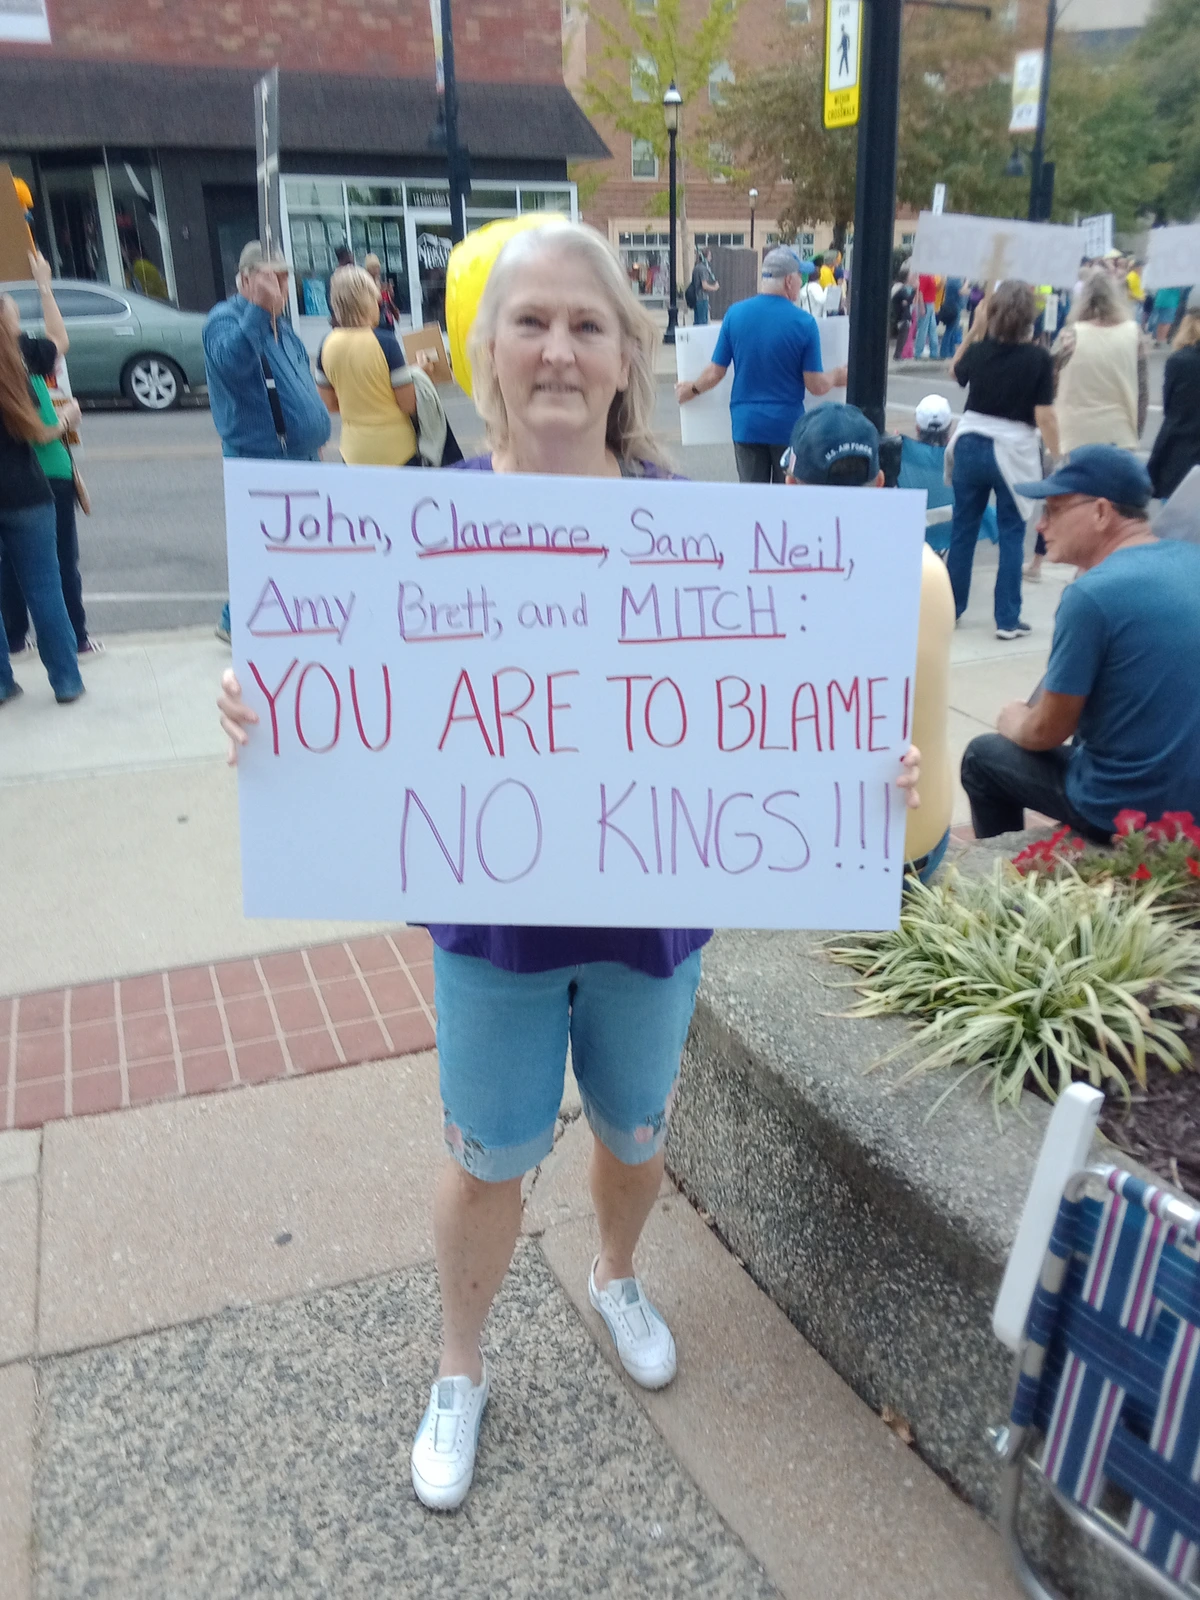 John, Clarence, Sam, Neil,
Amy Brett, and MITCH:
YOU ARE TO BLAME!
NO KINGS!!!
U.S. AIR FORCE
FOR
WITHIN
CROSSWALK